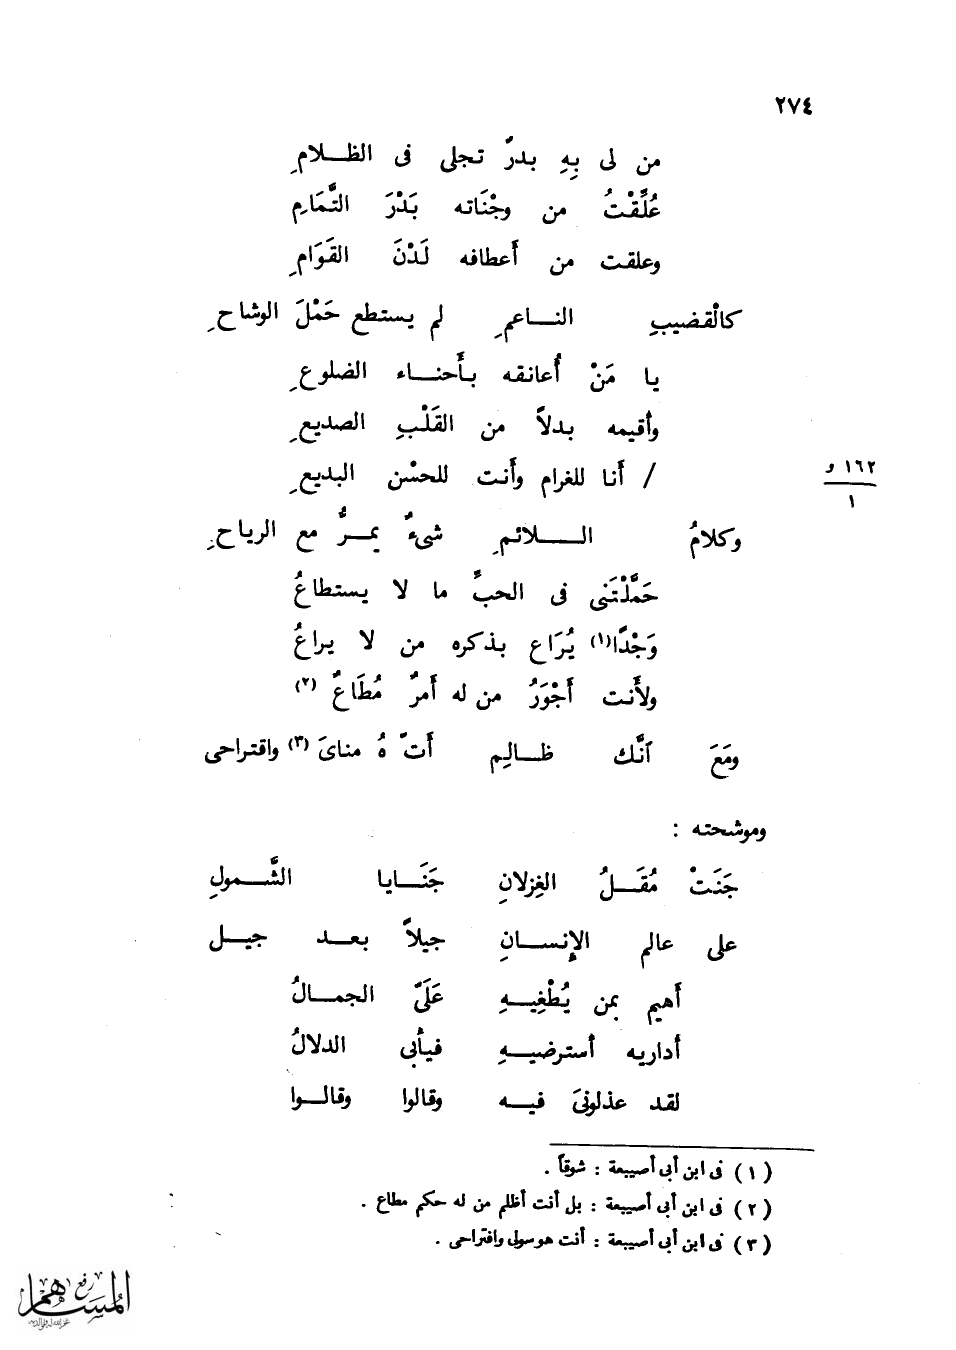 ٢٧٤
من لى بِهِ بدرٌ تجلى فى الظلامِ
عُلِّقْتُ من وجْنَاته بَدْرَ التَّمَامِ
وعلقت من أَعطافه لَدْنَ القَوَامِ
كالْقضيبِ الناعمِ لم يستطع حَمْلَ الوشاحِ
يا مَنْ أُعانقه بأَحناء الضلوعِ
وأقيمه بدلاً من القَلْبِ الصديعِ
/ أَنا للغرام وأَنت للحسْن البديعِ
١٦٢ و
١
وكلامُ اللائمِ شىءٌ يمرُّ مع الرياحِ
حَمَّلْتَنى فى الحبِّ ما لا يستطاعُ
وَجْدًا(١) يُرَاع بذكره من لا يراعُ
ولأَنت أَجْوَرُ من له أَمرٌ مُطَاعٌ (٢)
ومَعَ أَنَّك ظالِم أَتَّ هُ مناىَ (٣) واقتراحى
وموشحته :
جَنَتْ مُقَلُ الغِزلانِ جَنَايا الشَّمولِ
على عالم الإِنسانِ جيلاً بعد جيل
أَهيم بمن يُطْغِيهِ عَلَىَّ الجمالُ
أداريه أسترضيهِ فيأبى الدلالُ
لقد عذلونىَ فيه وقالوا وقالوا
(١) فى ابن أبى أصيبعة : شوقاً .
(٢) فى ابن أبى أصيبعة : بل أنت أظلم من له حكم مطاع .
(٣) فى ابن أبى أصيبعة : أنت هو سولى واقتراحى .
رفع
المساهم